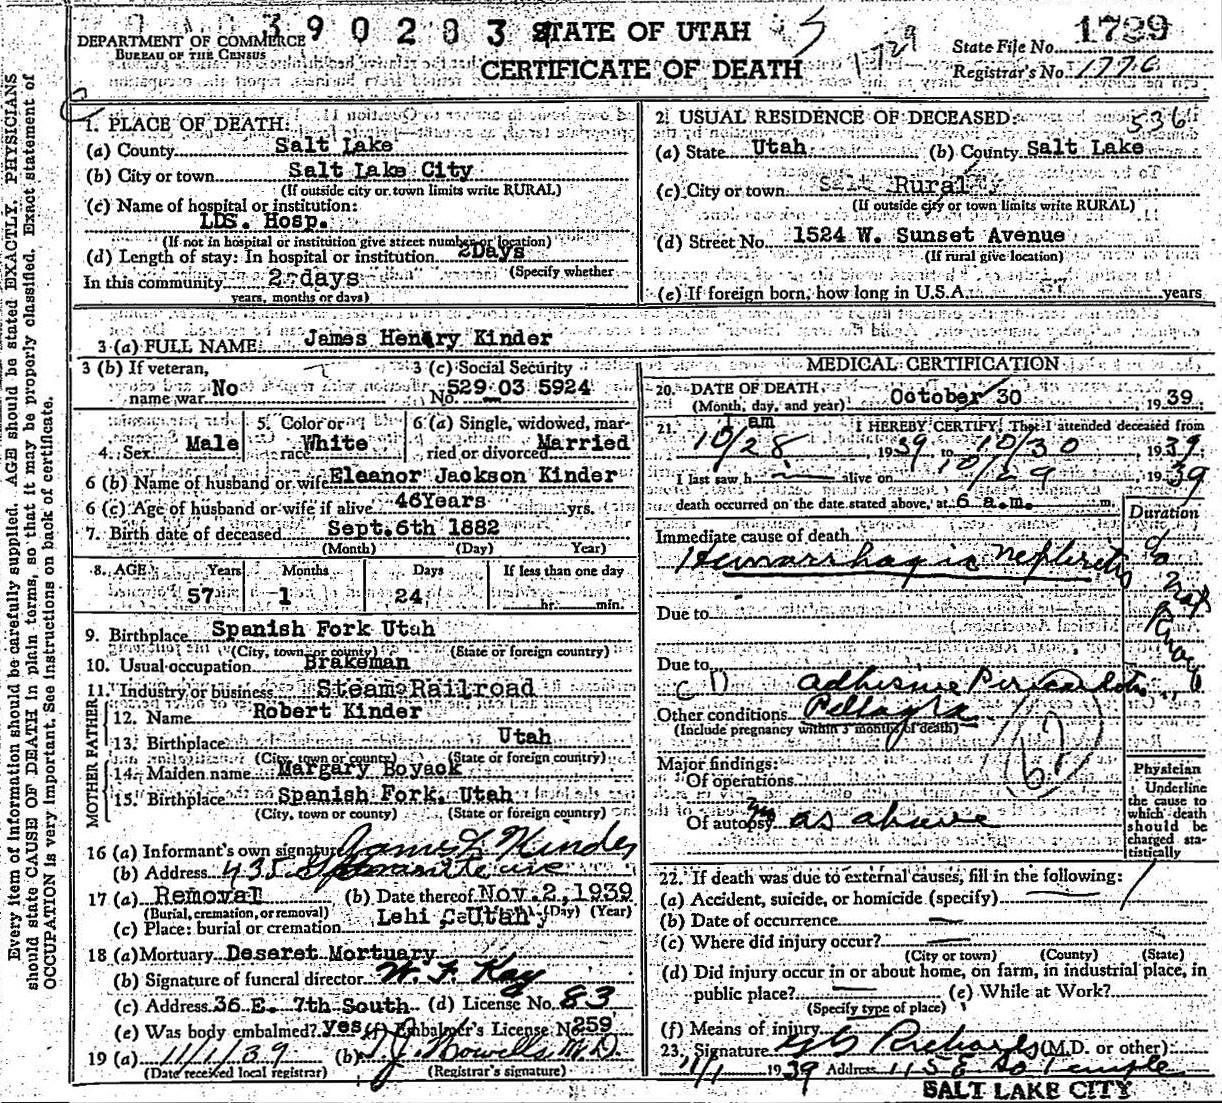 390283
STATE OF UTAH
DEPARTMENT OF COMMERCE
BUREAU OF THE CENSUS
CERTIFICATE OF DEATH
1729
State File No. 1729
Registrar's No. 1776
Every item of information should be carefully supplied. AGE should be stated EXACTLY. PHYSICIANS
should state CAUSE OF DEATH in plain terms, so that it may be properly classified. Exact statement of
OCCUPATION is very important. See instructions on back of certificate.
1. PLACE OF DEATH:
(a) County Salt Lake
(b) City or town Salt Lake City
(If outside city or town limits write RURAL)
(c) Name of hospital or institution:
LDS. Hosp.
(If not in hospital or institution give street number or location)
(d) Length of stay: In hospital or institution 2Days
(Specify whether
In this community 2 days
years, months or days)
2. USUAL RESIDENCE OF DECEASED:
536
(a) State Utah (b) County Salt Lake
(c) City or town Rural
(If outside city or town limits write RURAL)
(d) Street No. 1524 W. Sunset Avenue
(If rural give location)
(e) If foreign born, how long in U.S.A. years
3 (a) FULL NAME: James Henry Kinder
3 (b) If veteran,
name war No
3 (c) Social Security
No. 529 03 5924
4. Sex Male
5. Color or
race White
6 (a) Single, widowed, mar-
ried or divorced Married
6 (b) Name of husband or wife Eleanor Jackson Kinder
6 (c) Age of husband or wife if alive 46Years yrs.
7. Birth date of deceased Sept.6th 1882
(Month) (Day) Year)
8. AGE: Years Months Days If less than one day
57 1 24 hr. min.
9. Birthplace Spanish Fork Utah
(City, town or county) (State or foreign country)
10. Usual occupation Brakeman
11. Industry or business Steam Railroad
FATHER
12. Name Robert Kinder
13. Birthplace Utah
(City, town or county) (State or foreign country)
MOTHER
14. Maiden name Margary Boyack
15. Birthplace Spanish Fork, Utah
(City, town or county) (State or foreign country)
16 (a) Informant's own signature James L Kinder
(b) Address 435 ave
17 (a) Removal (b) Date thereof Nov.2,1939
(Burial, cremation, or removal) (Day) (Year)
(c) Place: burial or cremation Lehi Utah
18 (a) Mortuary Deseret Mortuary
(b) Signature of funeral director W. F. Kay
(c) Address 36 E. 7th South (d) License No. 83
(e) Was body embalmed? yes (f) Embalmer's License No 259
19 (a) 11/1/39 (b) T. J. Howells M.D.
(Date received local registrar) (Registrar's signature)
MEDICAL CERTIFICATION
20. DATE OF DEATH October 30 1939
(Month, day, and year)
21. I HEREBY CERTIFY, That I attended deceased from
am
10/28, 1939 to 10/30 1939
I last saw h alive on 10/29, 1939
death occurred on the date stated above, at 6 a.m. m.
Duration
Immediate cause of death
Hemorrhagic Nephritis
Due to
Due to
Adhesive Pericarditis
Other conditions Pellagra
(Include pregnancy within 3 months of death)
Major findings:
Of operations
Of autopsy as above
Physician
Underline
the cause to
which death
should be
charged sta-
tistically
22. If death was due to external causes, fill in the following:
(a) Accident, suicide, or homicide (specify)
(b) Date of occurrence
(c) Where did injury occur?
(City or town) (County) (State)
(d) Did injury occur in or about home, on farm, in industrial place, in
public place? (e) While at Work?
(Specify type of place)
(f) Means of injury
23. Signature G G Richards (M.D. or other)
11/1 1939 Address 115 E So Temple
SALT LAKE CITY